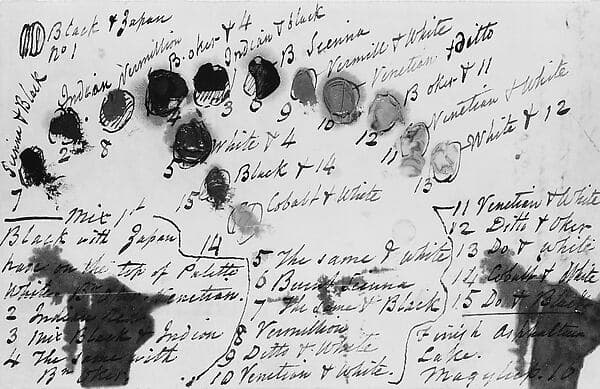 Black & Japan
No 1
Sienna & Black
Indian
Vermillion
B. Oker & 4
Indian & Black
B Sienna
Vermill & White
Venetian & ditto
B Oker & 11
Venetian & White
White & 12
White & 4
Black & 14
Cobalt & White
7
2
8
4
3
6
9
10
12
11
13
5
15
14
Mix 1st
Black with Japan
have on the top of Palette
White Bn Oker. Venetian.
2 Indian Red
3 Mix Black & Indian
4 The Same with
Bn Oker
5 The Same & White
6 Burnt Sienna
7 The Same & Black
8 Vermillion
9 Ditto & White
10 Venetian & White
11 Venetian & White
12 Ditto & Oker
13 Do & White
14 Cobalt & White
15 Do & Black
Finish Asphaltum
Lake.